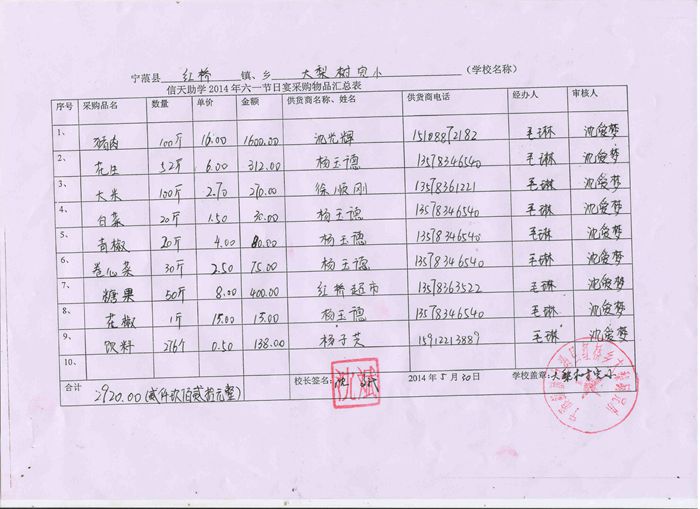 宁蒗县 红桥 镇、乡 大梨树完小 (学校名称)
信天助学2014年六一节日宴采购物品汇总表
序号 采购品名 数量 单价 金额 供货商名称、姓名 供货商电话 经办人 审核人
1、 猪肉 100斤 16.00 1600.00 沈光辉 15108872182 毛琳 沈爱梦
2、 花生 52斤 6.00 312.00 杨玉德 13578346540 毛琳 沈爱梦
3、 大米 100斤 2.70 270.00 徐顺刚 13578361221 毛琳 沈爱梦
4、 白菜 20斤 1.50 30.00 杨玉德 13578346540 毛琳 沈爱梦
5、 青椒 20斤 4.00 80.00 杨玉德 13578346540 毛琳 沈爱梦
6、 卷心菜 30斤 2.50 75.00 杨玉德 13578346540 毛琳 沈爱梦
7、 糖果 50斤 8.00 400.00 红桥超市 13578363522 毛琳 沈爱梦
8、 花椒 1斤 15.00 15.00 杨玉德 13578346540 毛琳 沈爱梦
9、 饮料 276个 0.50 138.00 杨子芝 15912213889 毛琳 沈爱梦
10、
合计 2920.00(贰仟玖佰贰拾元整) 校长签名: 沈斌 2014年5月30日 学校盖章: 大梨树完小